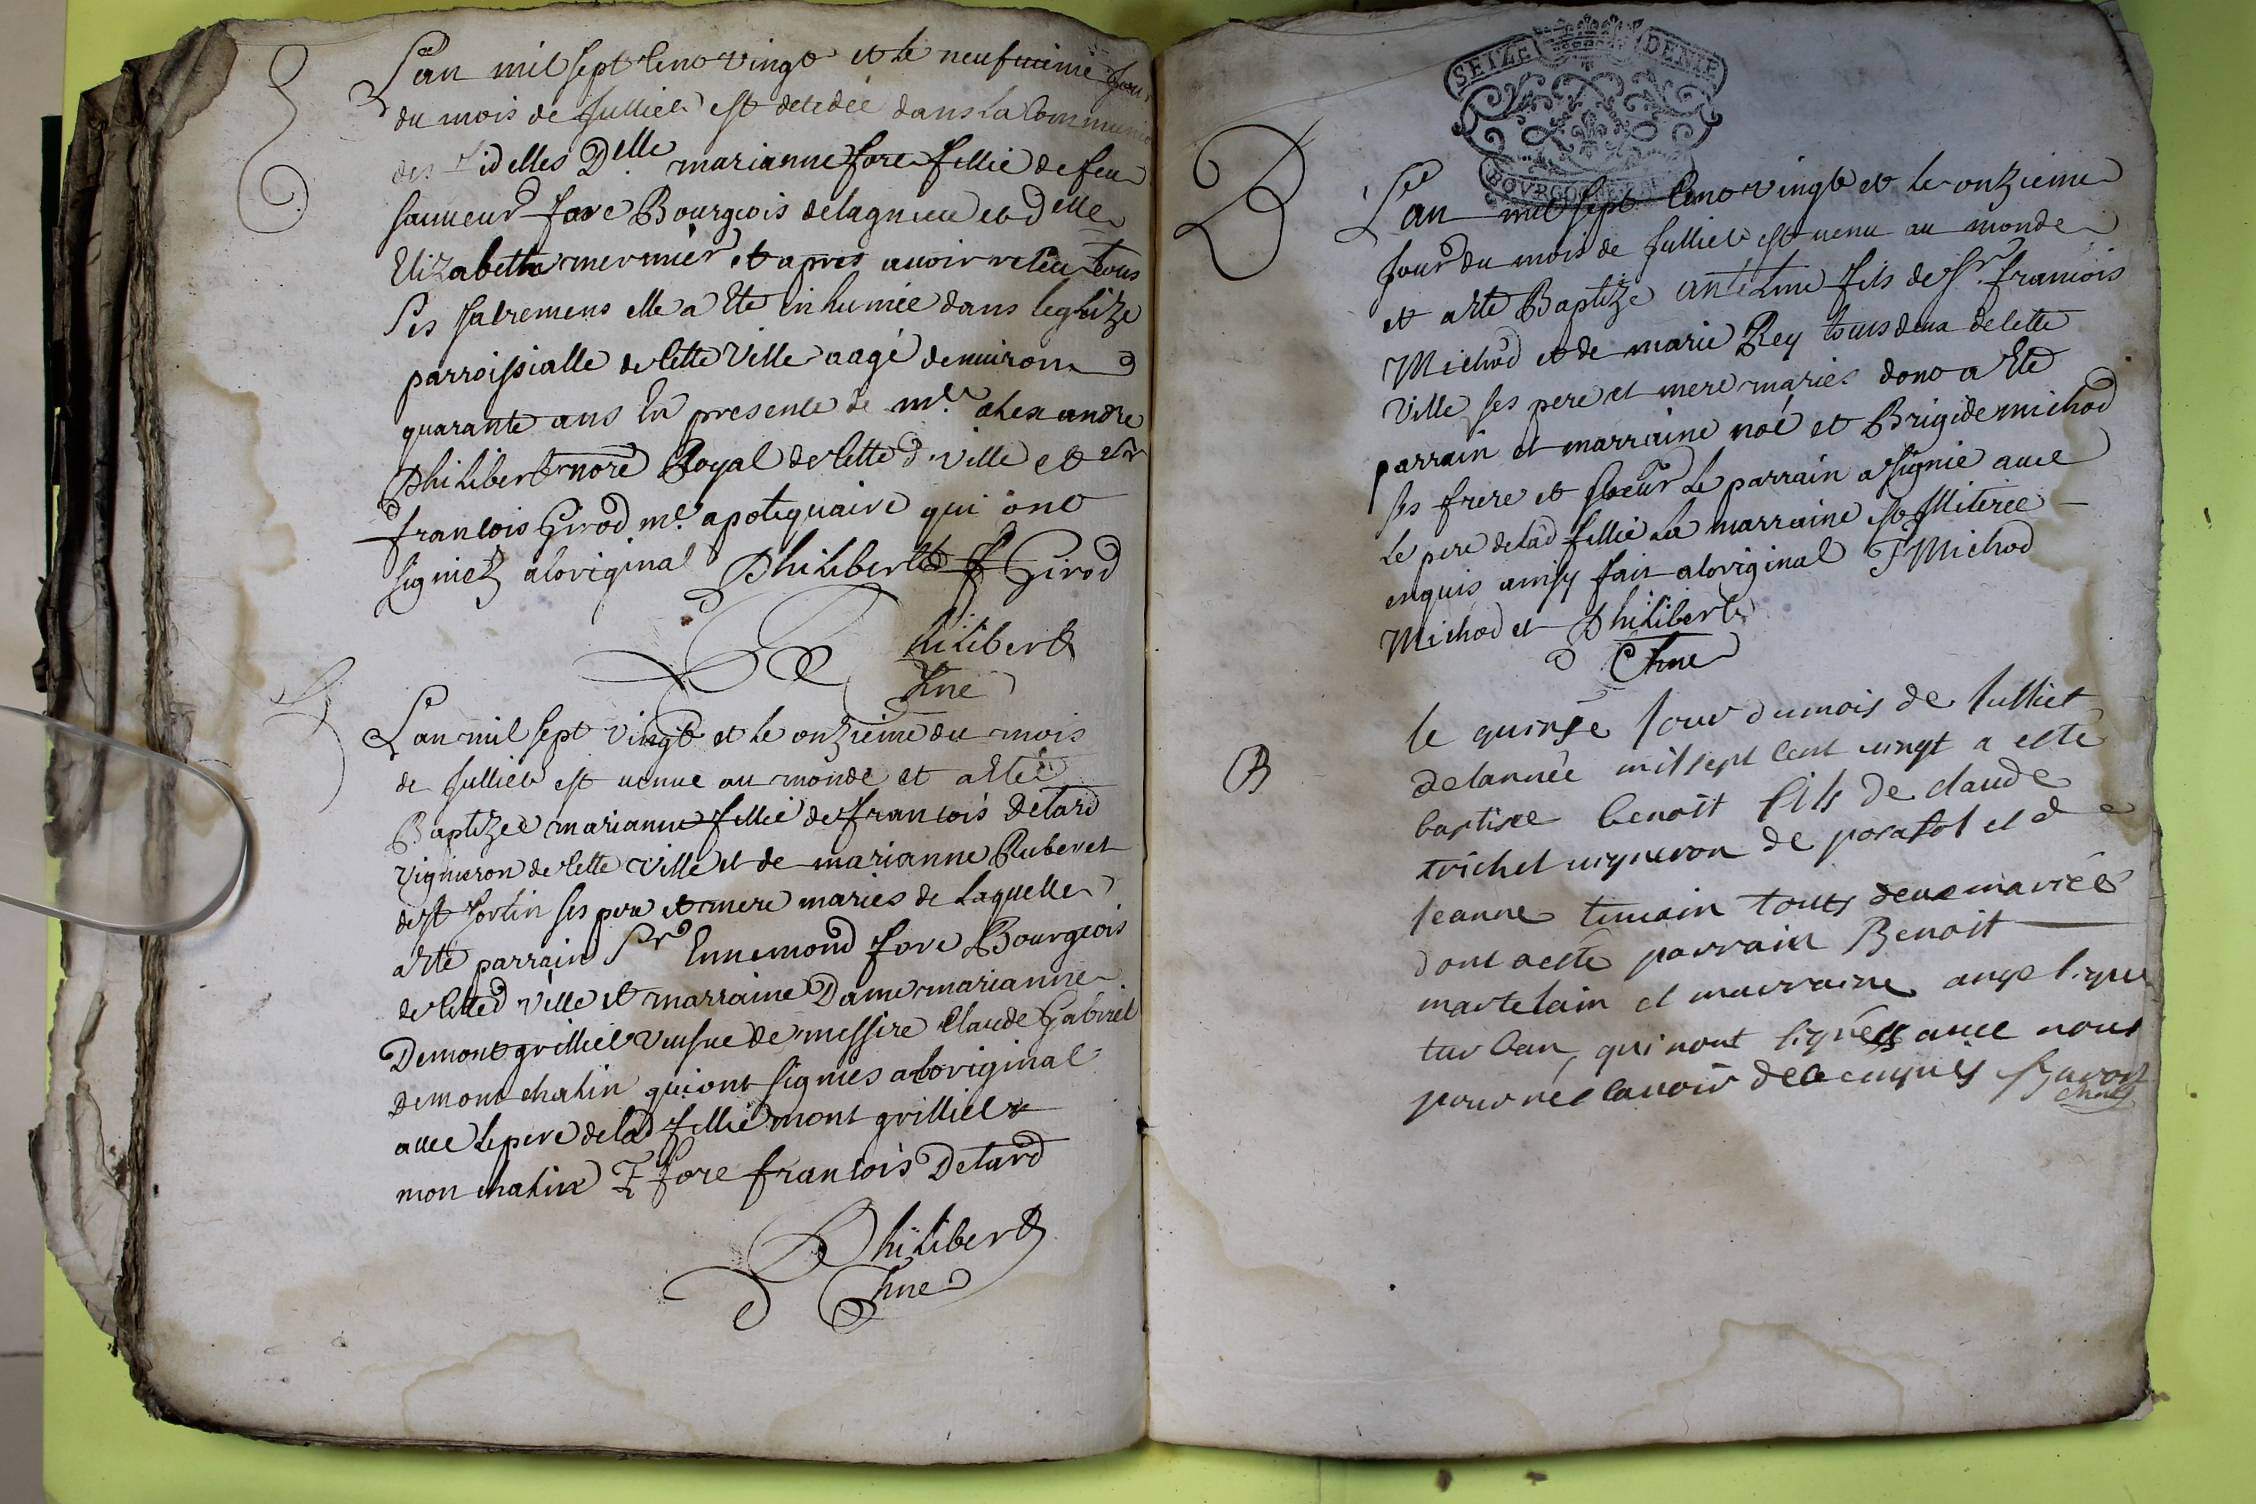 L'an mil sept cent vingt et le neufvieme jour
du mois de Juillet est decedée dans la Communion
des fidelles D.elle marianne fore fillie de feu
sauueur fore Bourgeois delagnieu et d elle
Elizabeth mermier et apres auoir receu tous
ses sacremens elle a ete in humée dans leglize
parroissialle de cette Ville aagé demuiron
quarante ans En presence de m.e alexandre
Philibert nore Royal de cette d. ville et sr
francois Girod m.e apotiquaire qui ont
signiez a loriginal Philibert f Girod
Philibert
Chne
L'an mil sept vingt et le onzieme du mois
de Julliet est uenue au monde et a ete
Baptizee marianne fillie de francois Detard
vigneron de cette ville et de marianne Ruberet
de st sorlin ses pere et mere mariés de laquelle
a ete parrain Sr Ennemond fore Bourgeois
de cette d ville et marraine Dame marianne
Demontgrilliet veufue de messire Claude Gabriel
demont chalin qui ont signies a loriginal
auec le pere de lad fillie mont grilliet
mon chalin E fore francois Detard
Philibert
Chne
SEIZE DENIE
BOVRGOGNE
B
L'an mil sept Cent vingt et le onzieme
Jour du mois de Julliet est uenu au monde
et a ete Baptize antelme fils de Sr. francois
Michod et de marie Rey tous deux de cette
Ville ses pere et mere maries dont a ete
parrain et marraine noé et Brigide michod
ses frere et soeur Le parrain a signie auec
Le pere de lad fillie La marraine est Miteree
enquis ainsy fait a loriginal F Michod
Michod et Philibert
Chne
B
le quinse Jour dumois de Julliet
delannée mil sept cent uingt a esté
baptisee benoit fils de claude
trichet uigneron de porafol et de
Jeanne temain touts deux mariés
dont a esté parrain Benoit
martelain et marraine angelique
turban, qui nont signés auec nous
pour ne scauoir de ce enquis
Chne